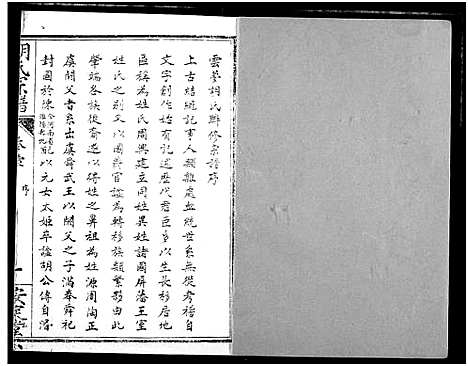 雲夢胡氏聯修宗譜序
上古結繩記事人類雖血世系無從考稽自
文字創作始有記述歷代君臣多以生長移居地
區稱為姓氏周興建立同姓異姓諸國屏藩王室
姓氏之別又以國爵官諡為轉移族類繁彰由此
肇端各族後裔遂以得姓之鼻祖為姓源周陶正
虞閼父者系出虞舜武王以閼父之子滿奉舜祀
封國於陳以元女太姬卒諡胡公傳自
胡氏宗譜
卷
序
一
安定堂